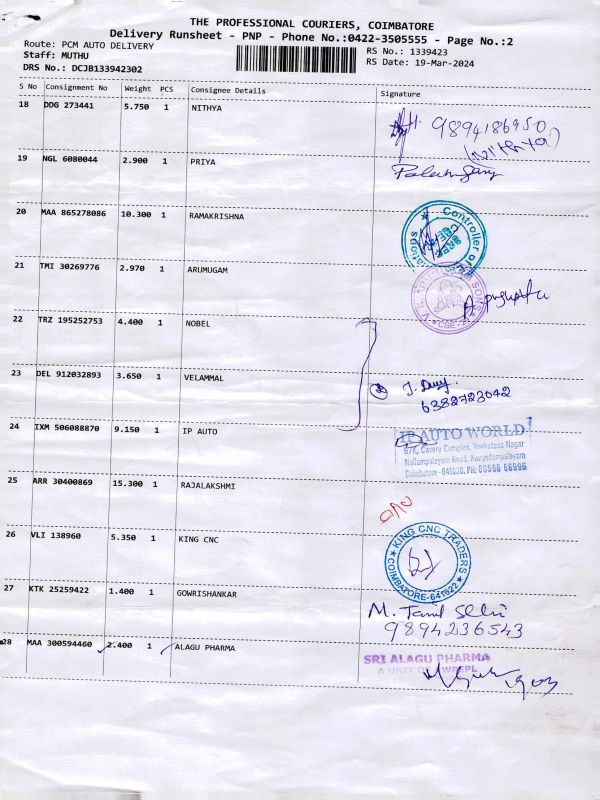 THE PROFESSIONAL COURIERS, COIMBATORE
Delivery Runsheet - PNP - Phone No.:0422-3505555 - Page No.:2
Route: PCM AUTO DELIVERY
RS No.: 1339423
Staff: MUTHU
RS Date: 19-Mar-2024
DRS No.: DCJB133942302
S No Consignment No Weight PCS Consignee Details Signature
18 DDG 273441 5.750 1 NITHYA
9894186950
(Nithya)
19 NGL 6080044 2.900 1 PRIYA
20 MAA 865278086 10.300 1 RAMAKRISHNA
Controller of
21 TMI 30269776 2.970 1 ARUMUGAM
22 TRZ 195252753 4.400 1 NOBEL
23 DEL 912032893 3.650 1 VELAMMAL
6382723042
24 IXM 506088870 9.150 1 IP AUTO
IP AUTO WORLD
67K, Cavery Complex, Venkatesa Nagar
Nallampalayam Road, Kavundampalayam
Coimbatore - 641030, PH: 80566 66996
25 ARR 30400869 15.300 1 RAJALAKSHMI
26 VLI 138960 5.350 1 KING CNC
KING CNC TRADERS
COIMBATORE-641022
27 KTK 25259422 1.400 1 GOWRISHANKAR
M. Tamil Selvi
9894236543
28 MAA 300594460 2.400 1 ALAGU PHARMA
SRI ALAGU PHARMA
A UNIT OF